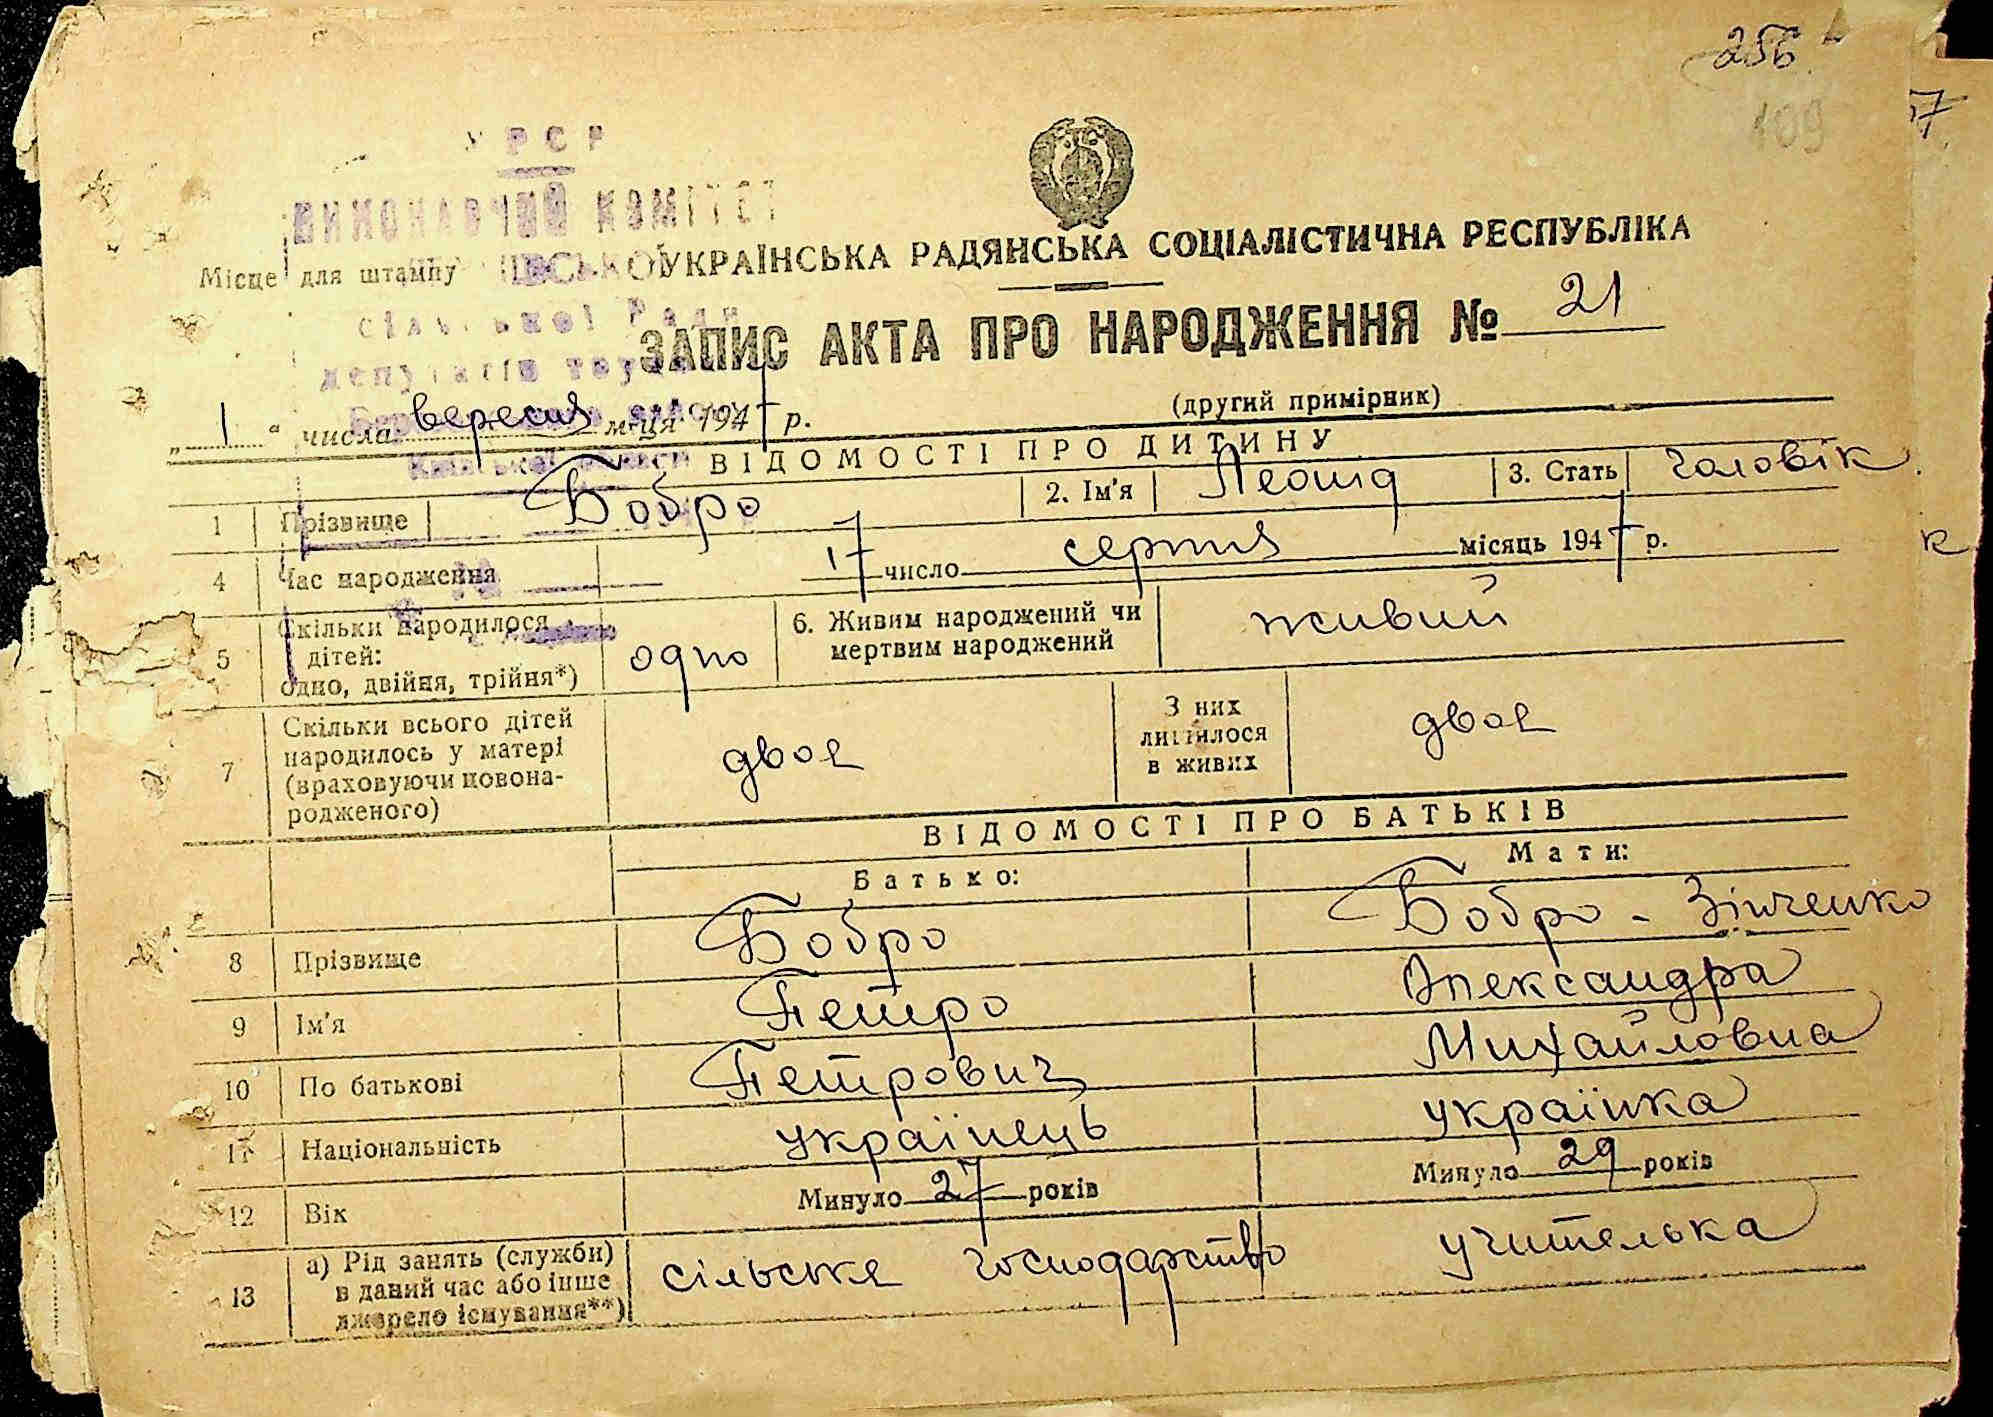 256
109
57
УРСР
ВИКОНАВЧИЙ КОМІТЕТ
Місце для штампу
УКРАЇНСЬКА РАДЯНСЬКА СОЦІАЛІСТИЧНА РЕСПУБЛІКА
сільської Ради
ЗАПИС АКТА ПРО НАРОДЖЕННЯ № 21
депутатів
(другий примірник)
„ 1 “ числа вересня м-ця 1947 р.
Київської області
ВІДОМОСТІ ПРО ДИТИНУ
1 Прізвище Бобро 2. Ім'я Леонід 3. Стать чоловік
4 Час народження 17 число серпня місяць 1947 р.
к
5 Скільки народилося дітей: одно, двійня, трійня*) одно 6. Живим народжений чи мертвим народжений живий
7 Скільки всього дітей народилось у матері (враховуючи новонародженого) двоє З них лишилося в живих двоє
ВІДОМОСТІ ПРО БАТЬКІВ
Батько: Мати:
8 Прізвище Бобро Бобро - Зінченко
9 Ім'я Петро Олександра
10 По батькові Петрович Михайловна
11 Національність українець українка
12 Вік Минуло 27 років Минуло 29 років
13 а) Рід занять (служби) в даний час або інше джерело існування**) сільське господарство учителька